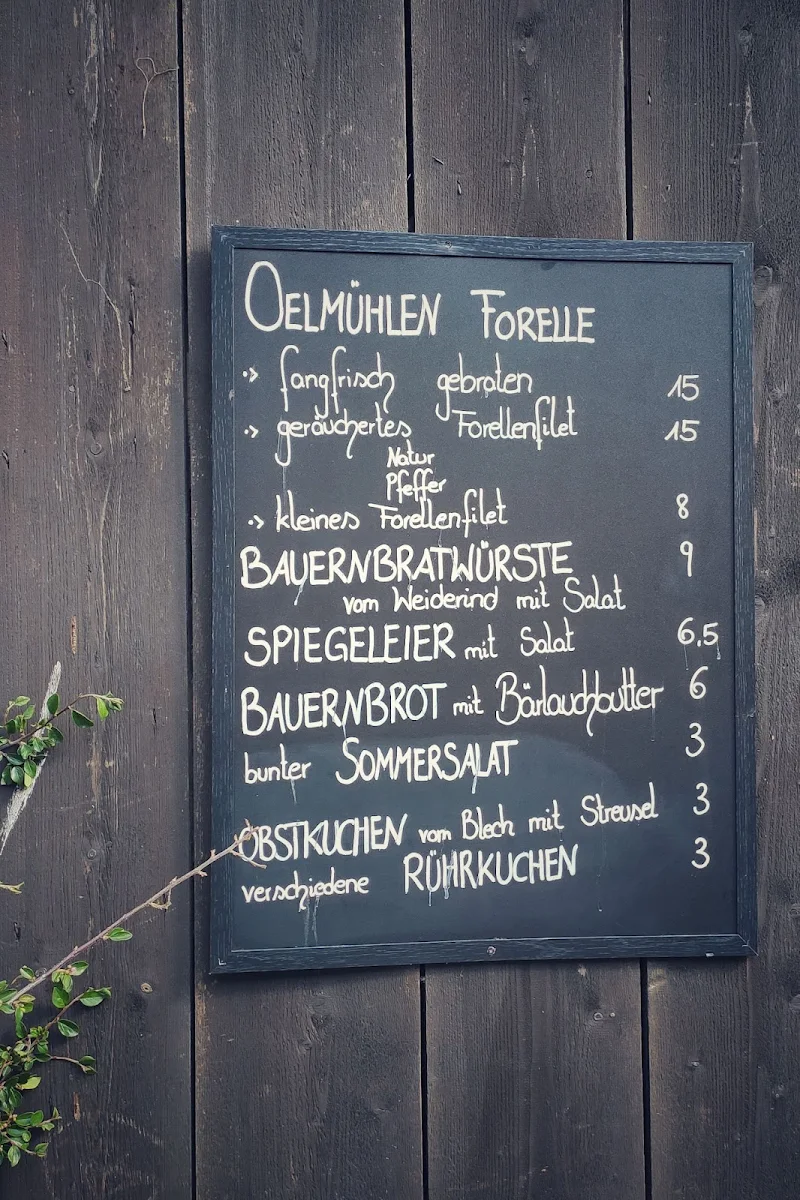 OELMÜHLEN FORELLE
·> fangfrisch gebraten 15
·> geräuchertes Forellenfilet 15
Natur
Pfeffer
·> kleines Forellenfilet 8
BAUERNBRATWÜRSTE 9
vom Weiderind mit Salat
SPIEGELEIER mit Salat 6,5
BAUERNBROT mit Bärlauchbutter 6
bunter SOMMERSALAT 3
OBSTKUCHEN vom Blech mit Streusel 3
verschiedene RÜHRKUCHEN 3